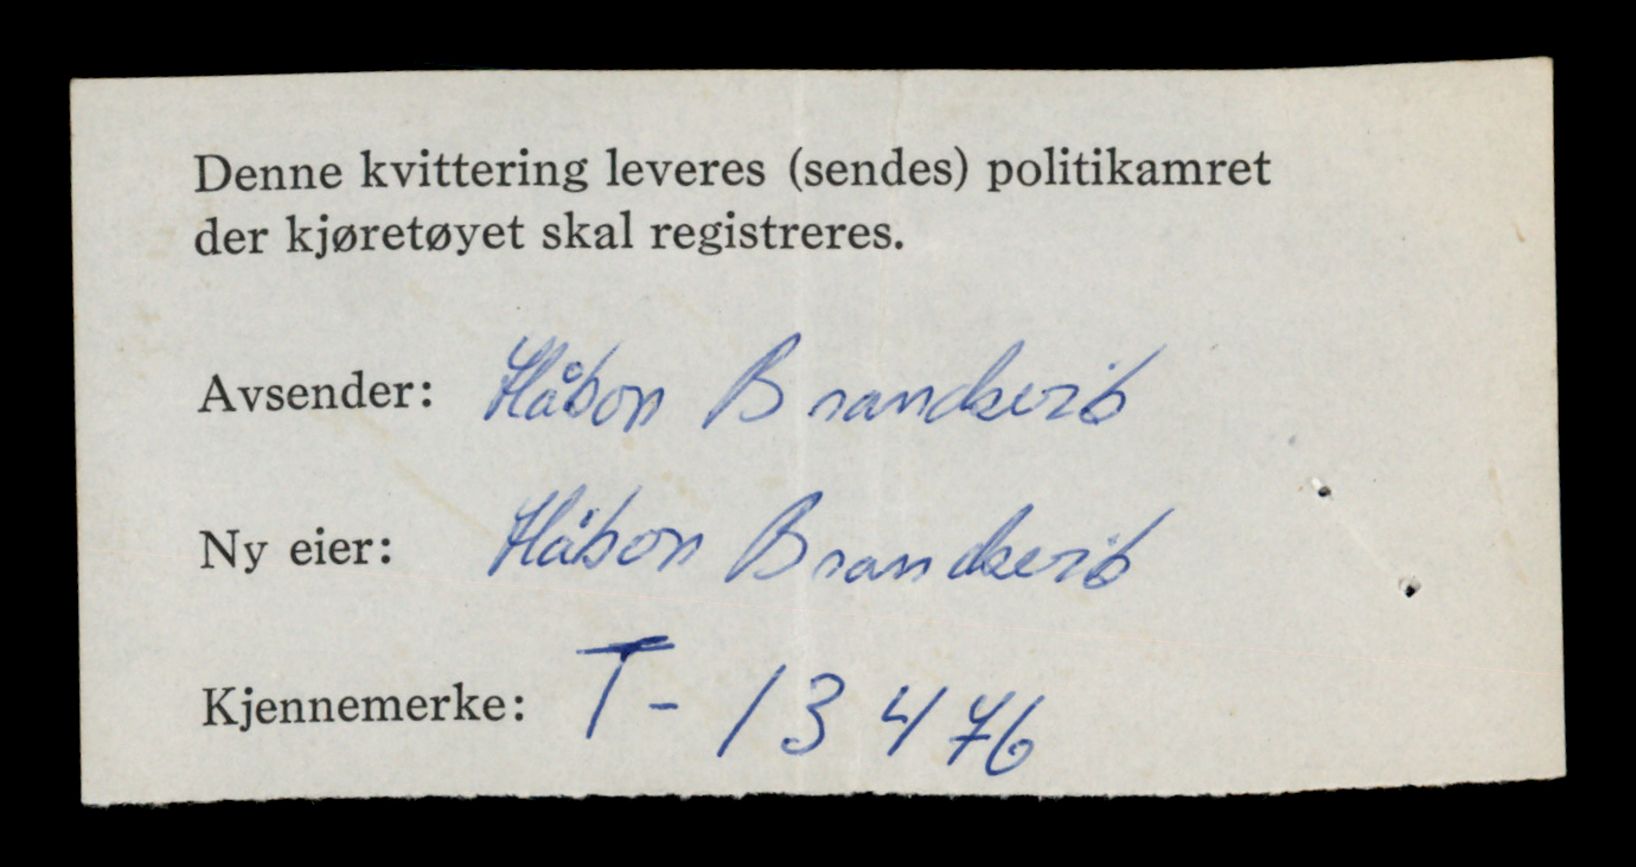 Denne kvittering leveres (sendes) politikamret
der kjøretøyet skal registreres.
Avsender: Håkon
Ny eier: Håkon
Kjennemerke: T-13476